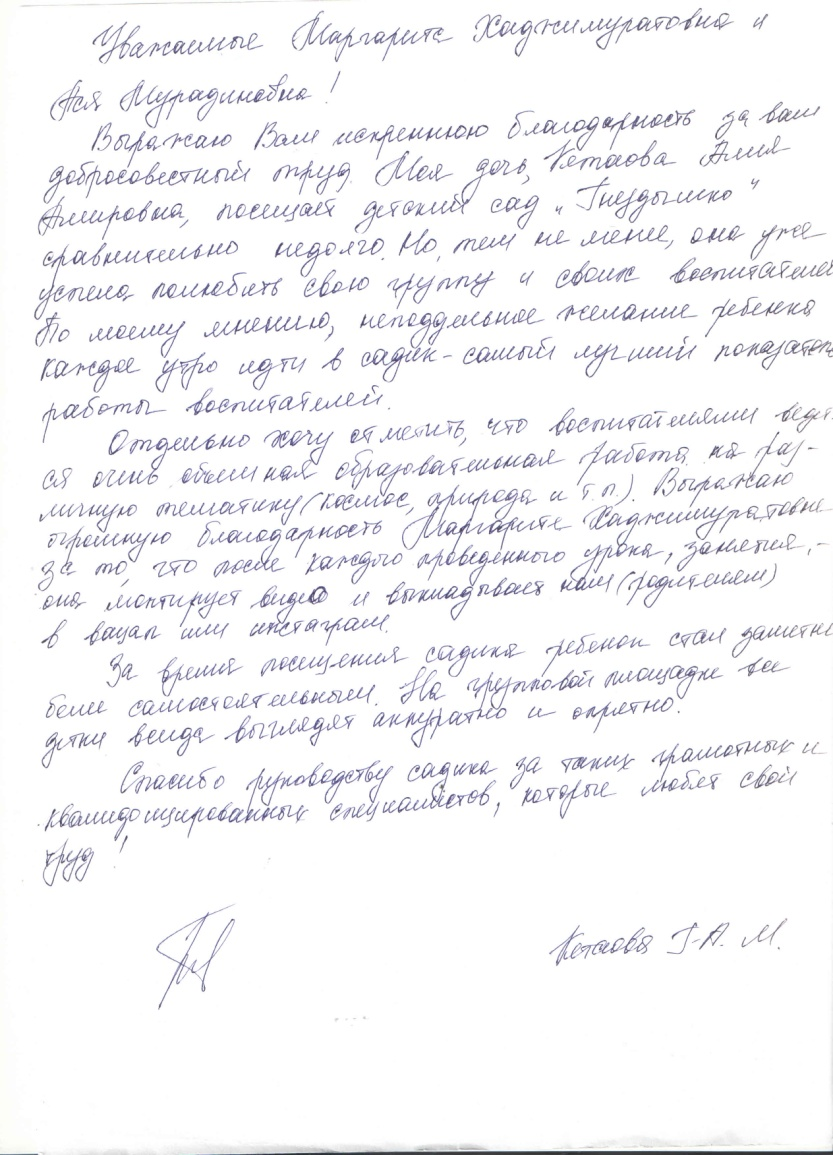 Уважаемые Маргарита Хаджимуратовна и
Ася Мурадиновна!
Выражаю Вам искреннюю благодарность за ваш
добросовестный труд. Моя дочь, Кетаова Алия
Амировна, посещает детский сад „Гнездышко"
сравнительно недолго. Но, тем не менее, она уже
успела полюбить свою группу и своих воспитателей
По моему мнению, неподдельное желание ребенка
каждое утро идти в садик - самый лучший показатель
работы воспитателей.
Отдельно хочу отметить, что воспитателями ведет
ся очень объемная образовательная работа на раз-
личную тематику (космос, природа и т.п.). Выражаю
огромную благодарность Маргарите Хаджимуратовне
за то, что после каждого проведенного урока, занятия, -
она монтирует видео и выкладывает нам (родителям)
в вацап или инстаграм.
За время посещения садика ребенок стал заметно
более самостоятельным. На групповой площадке все
детки всегда выглядят аккуратно и опрятно.
Спасибо руководству садика за таких грамотных и
квалифицированных специалистов, которые любят свой
труд!
Кетаова Г-А. М.